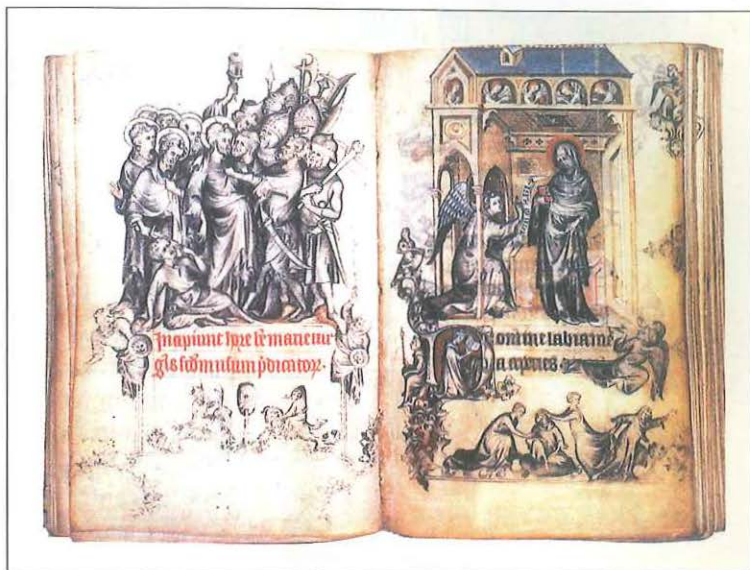 Incipiunt hore be marie vir
gis scdm usum pdicatoꝝ.
Domine labia me
a aperies.